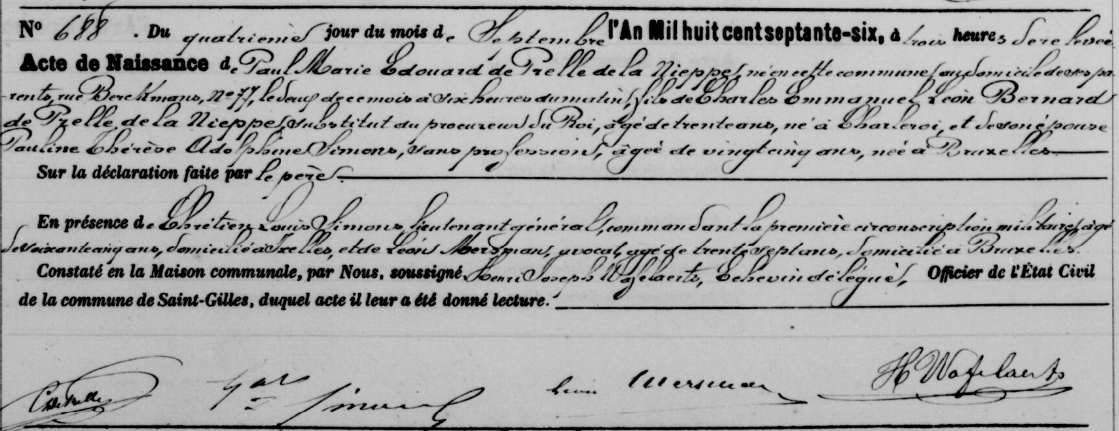 N° 688. Du quatrième jour du mois de Septembre l'An Mil huit cent septante-six, à trois heures de relevée
Acte de Naissance de Paul Marie Edouard de Prelle de la Nieppe, né en cette commune, au domicile de ses pa-
rents, rue Berckmans, N° 77, le deux de ce mois à six heures du matin, fils de Charles Emmanuel Léon Bernard
de Prelle de la Nieppe, substitut du procureur du Roi, âgé de trente ans, né à Charleroi, et de son épouse
Pauline Thérèse Adolphine Simons, sans profession, âgée de vingt cinq ans, née à Bruxelles
Sur la déclaration faite par le père.
En présence de Chrétien Louis Simons, lieutenant général, commandant la première circonscription militaire, âgé
de soixante cinq ans, domicilié à Ixelles, et de Léon Mersman, avocat, âgé de trente sept ans, domicilié à Bruxelles
Constaté en la Maison communale, par Nous, soussigné Henri Joseph Wafelaerts, Echevin délégué, Officier de l'État Civil
de la commune de Saint-Gilles, duquel acte il leur a été donné lecture.
Simons Léon Mersman H Wafelaerts